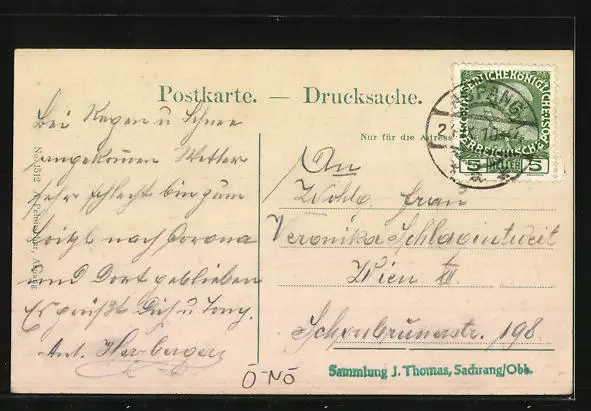 Postkarte. — Drucksache.
Nur für die Adresse
ASPANG
KAISERLICHE KÖNIGLICHE ÖSTERREICHISCHE POST
5 HELLER 5
Bei Regen u Schnee
angekommen Wetter
sehr schlecht bin zum
nach Corona
und Dort geblieben
Es grüßt Dich u Tony.
Ant. Herberger
An
Wohlg. Frau
Veronika Schlagintweit
Wien XII
Schönbrunnerstr. 198.
No. 1512
Aspang
Ö-NÖ
Sammlung J. Thomas, Sachrang/Obb.